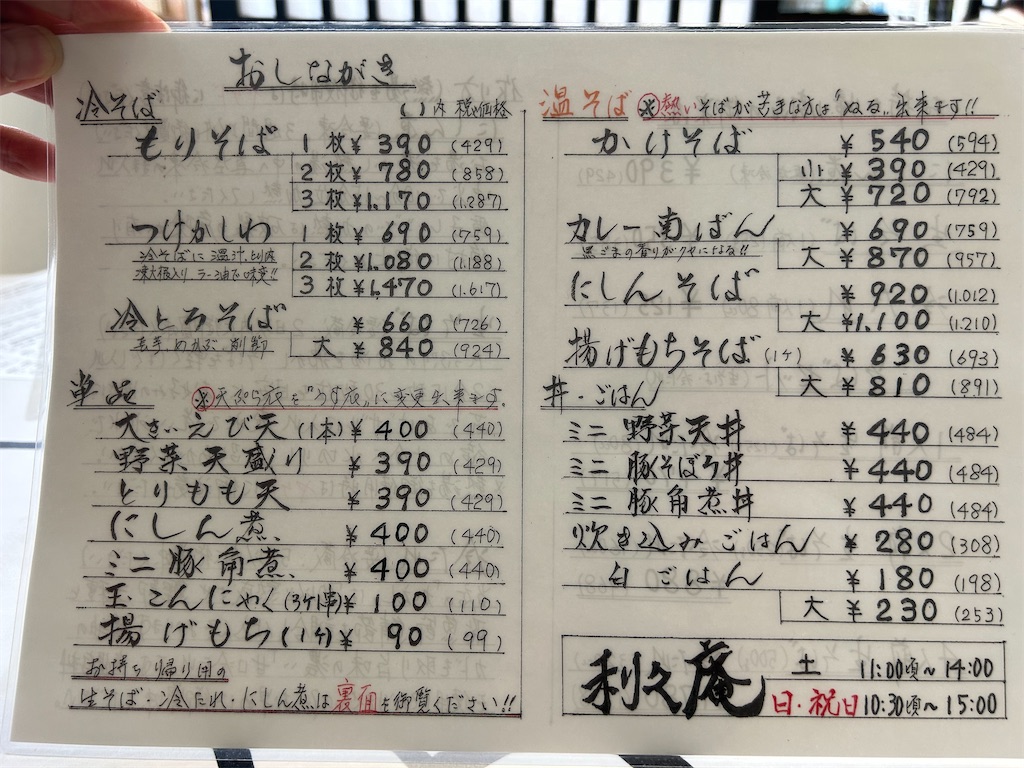 おしながき
冷そば
( )内 税込価格
もりそば 1枚 ¥390 (429)
2枚 ¥780 (858)
3枚 ¥1,170 (1,287)
つけかしわ 1枚 ¥690 (759)
冷そばに温汁、とり肉 2枚 ¥1,080 (1,188)
ラー油で味変!! 3枚 ¥1,470 (1,617)
冷とろそば ¥660 (726)
長芋、めかぶ、 大 ¥840 (924)
単品 ※天ぷら衣を"うす衣"に変更出来ます。
大きいえび天(1本) ¥400 (440)
野菜天盛り ¥390 (429)
とりもも天 ¥390 (429)
にしん煮 ¥400 (440)
ミニ豚角煮 ¥400 (440)
玉こんにゃく(3ケ1串) ¥100 (110)
揚げもち(1ケ) ¥90 (99)
お持ち帰り用の
生そば・冷たれ・にしん煮は裏面を御覧ください!!
温そば ※熱いそばが苦手な方は"ぬる〟出来ます!!
かけそば ¥540 (594)
小 ¥390 (429)
大 ¥720 (792)
カレー南ばん ¥690 (759)
黒ごまの香りがクセになる!! 大 ¥870 (957)
にしんそば ¥920 (1,012)
大 ¥1,100 (1,210)
揚げもちそば(1ケ) ¥630 (693)
大 ¥810 (891)
丼・ごはん
ミニ 野菜天丼 ¥440 (484)
ミニ 豚そぼろ丼 ¥440 (484)
ミニ 豚角煮丼 ¥440 (484)
炊き込みごはん ¥280 (308)
白ごはん ¥180 (198)
大 ¥230 (253)
利久庵
土 11:00頃〜14:00
日・祝日 10:30頃〜15:00